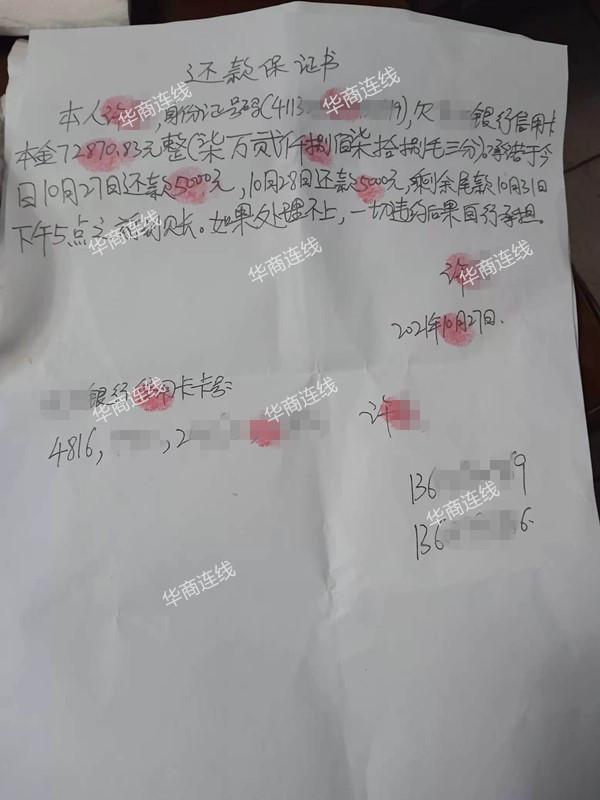 还款保证书
本人许,身份证号码(4113 9),欠 银行信用卡
本金72870.83元整(柒万贰仟捌佰柒拾捌毛三分)。承诺于今
日10月27日还款5000元,10月28日还款5000元,剩余尾款10月31日
下午5点之前到账。如果处理不上,一切违约后果自行承担。
许
2021年10月27日.
银行信用卡卡号:
4816, ,2
许
136 9
136 6.
华商连线
华商连线
华商连线
华商连线
华商连线
华商连线
华商连线
华商连线
华商连线